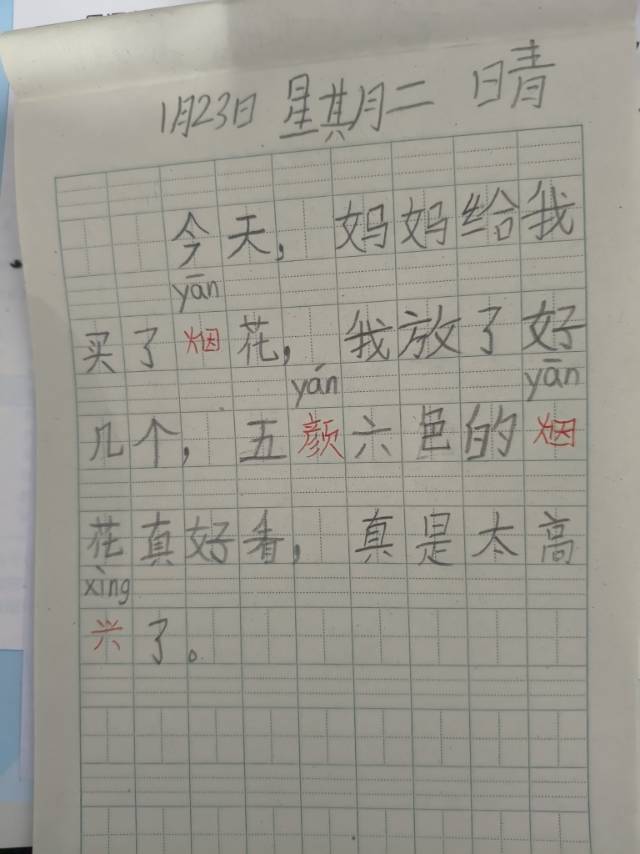 1月23日 星期二 晴
今天，妈妈给我
yān
买了烟花，我放了好
yán yān
几个，五颜六色的烟
花真好看，真是太高
xìng
兴了。